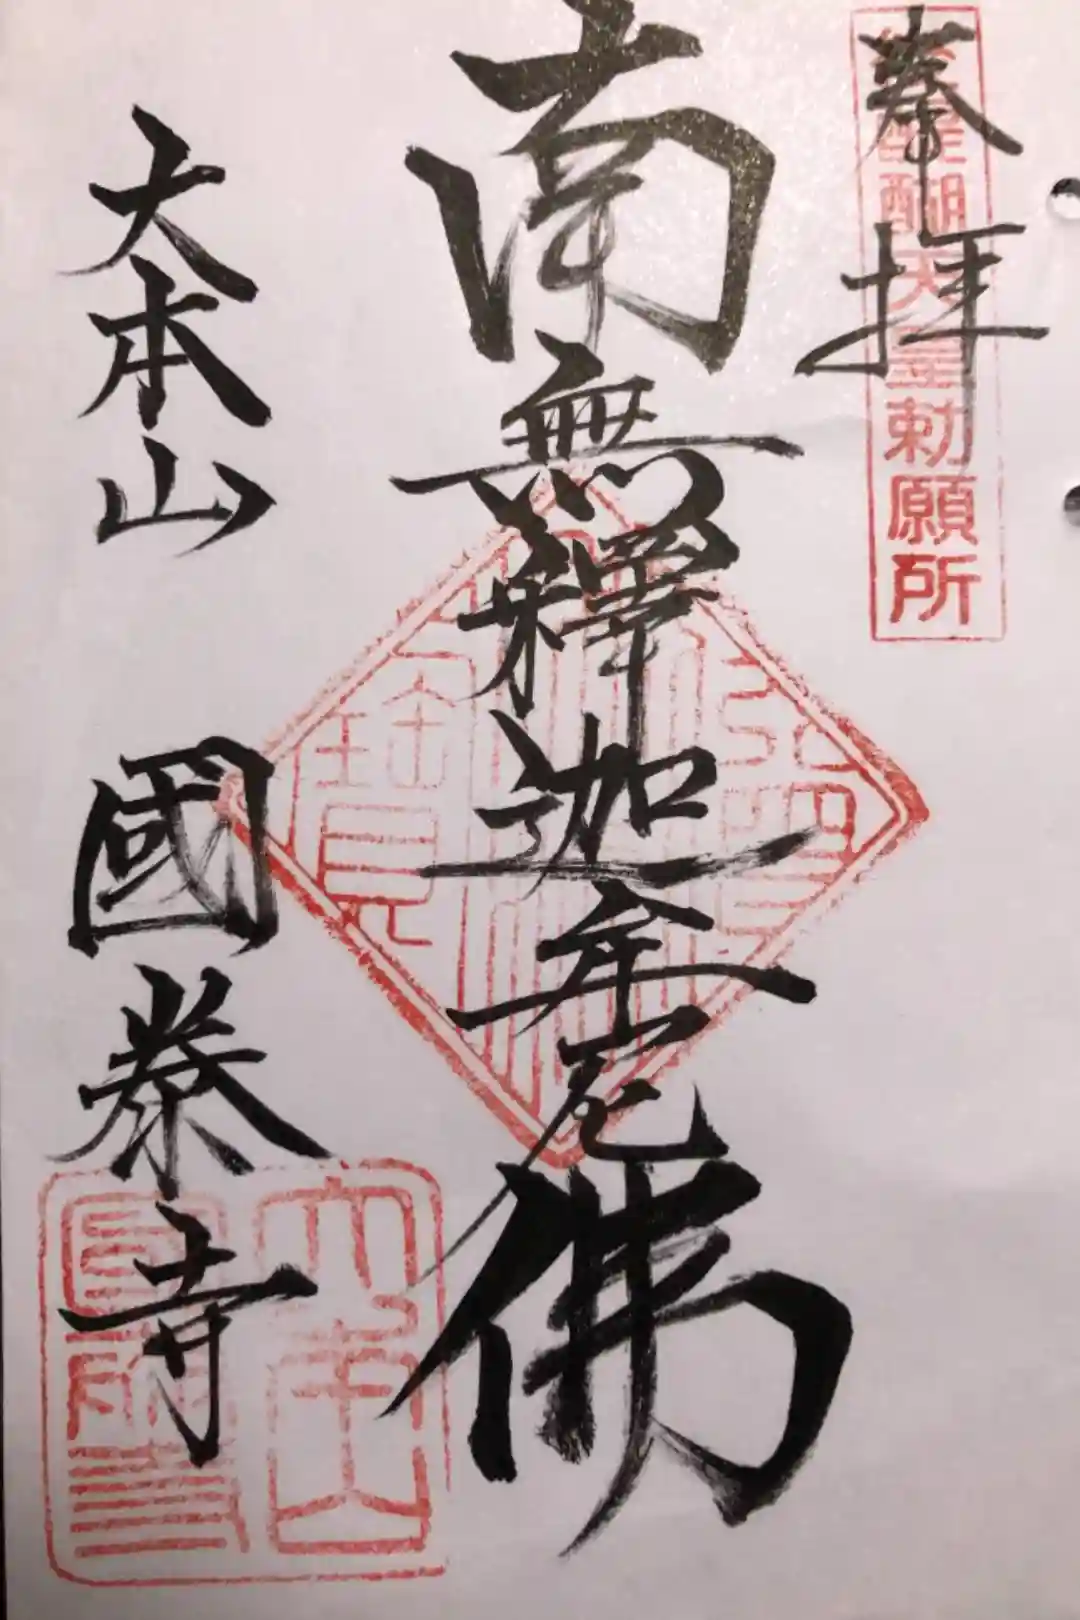 奉拝
後醍醐天皇勅願所
南無釋迦牟尼佛
大本山 國泰寺